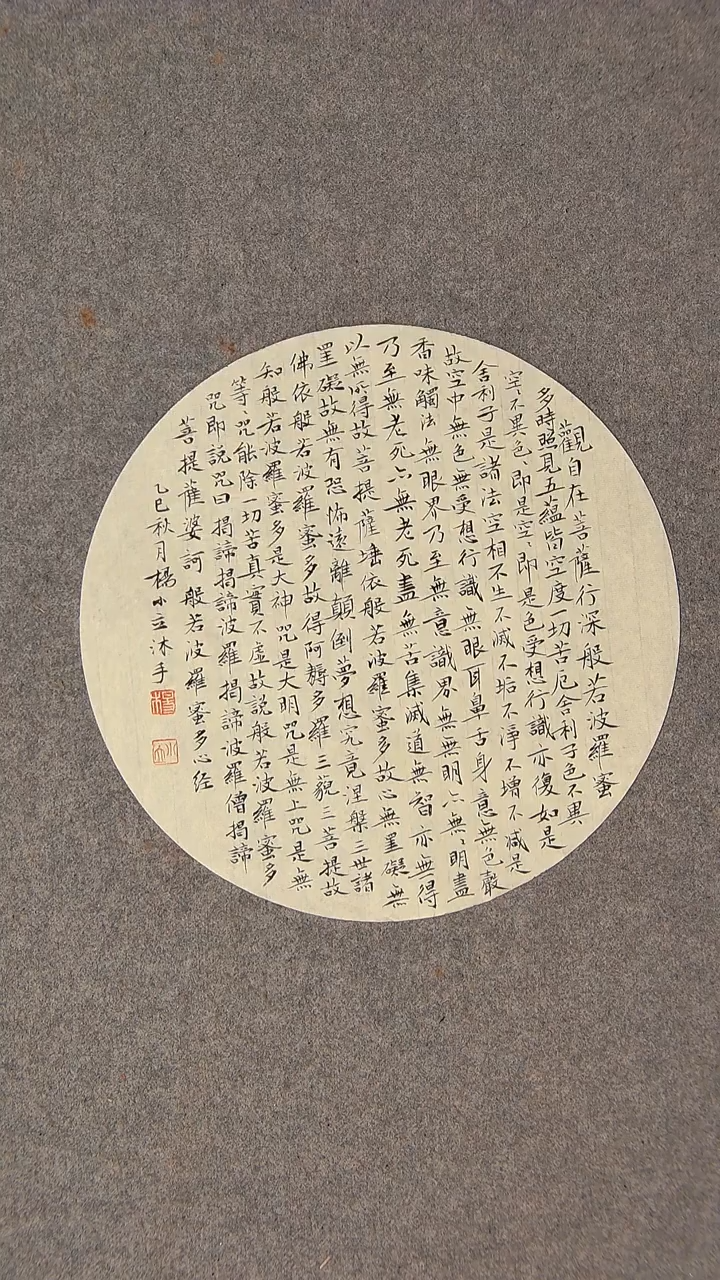 觀自在菩薩行深般若波羅蜜
多時照見五蘊皆空度一切苦厄舍利子色不異
空、不異色、即是空、即是色受想行識亦復如是
舍利子是諸法空相不生不滅不垢不淨不增不減是
故空中無色無受想行識無眼耳鼻舌身意無色聲
香味觸法無眼界乃至無意識界無無明亦無、明盡
乃至無老死亦無老死盡無苦集滅道無智亦無得
以無所得故菩提薩埵依般若波羅蜜多故心無罣礙無
罣礙故無有恐怖遠離顛倒夢想究竟涅槃三世諸
佛依般若波羅蜜多故得阿耨多羅三藐三菩提故
知般若波羅蜜多是大神咒是大明咒是無上咒是無
等、咒能除一切苦真實不虛故說般若波羅蜜多
咒即說咒曰揭諦揭諦波羅揭諦波羅僧揭諦
菩提薩婆訶 般若波羅蜜多心经
乙巳秋月楊小立沐手